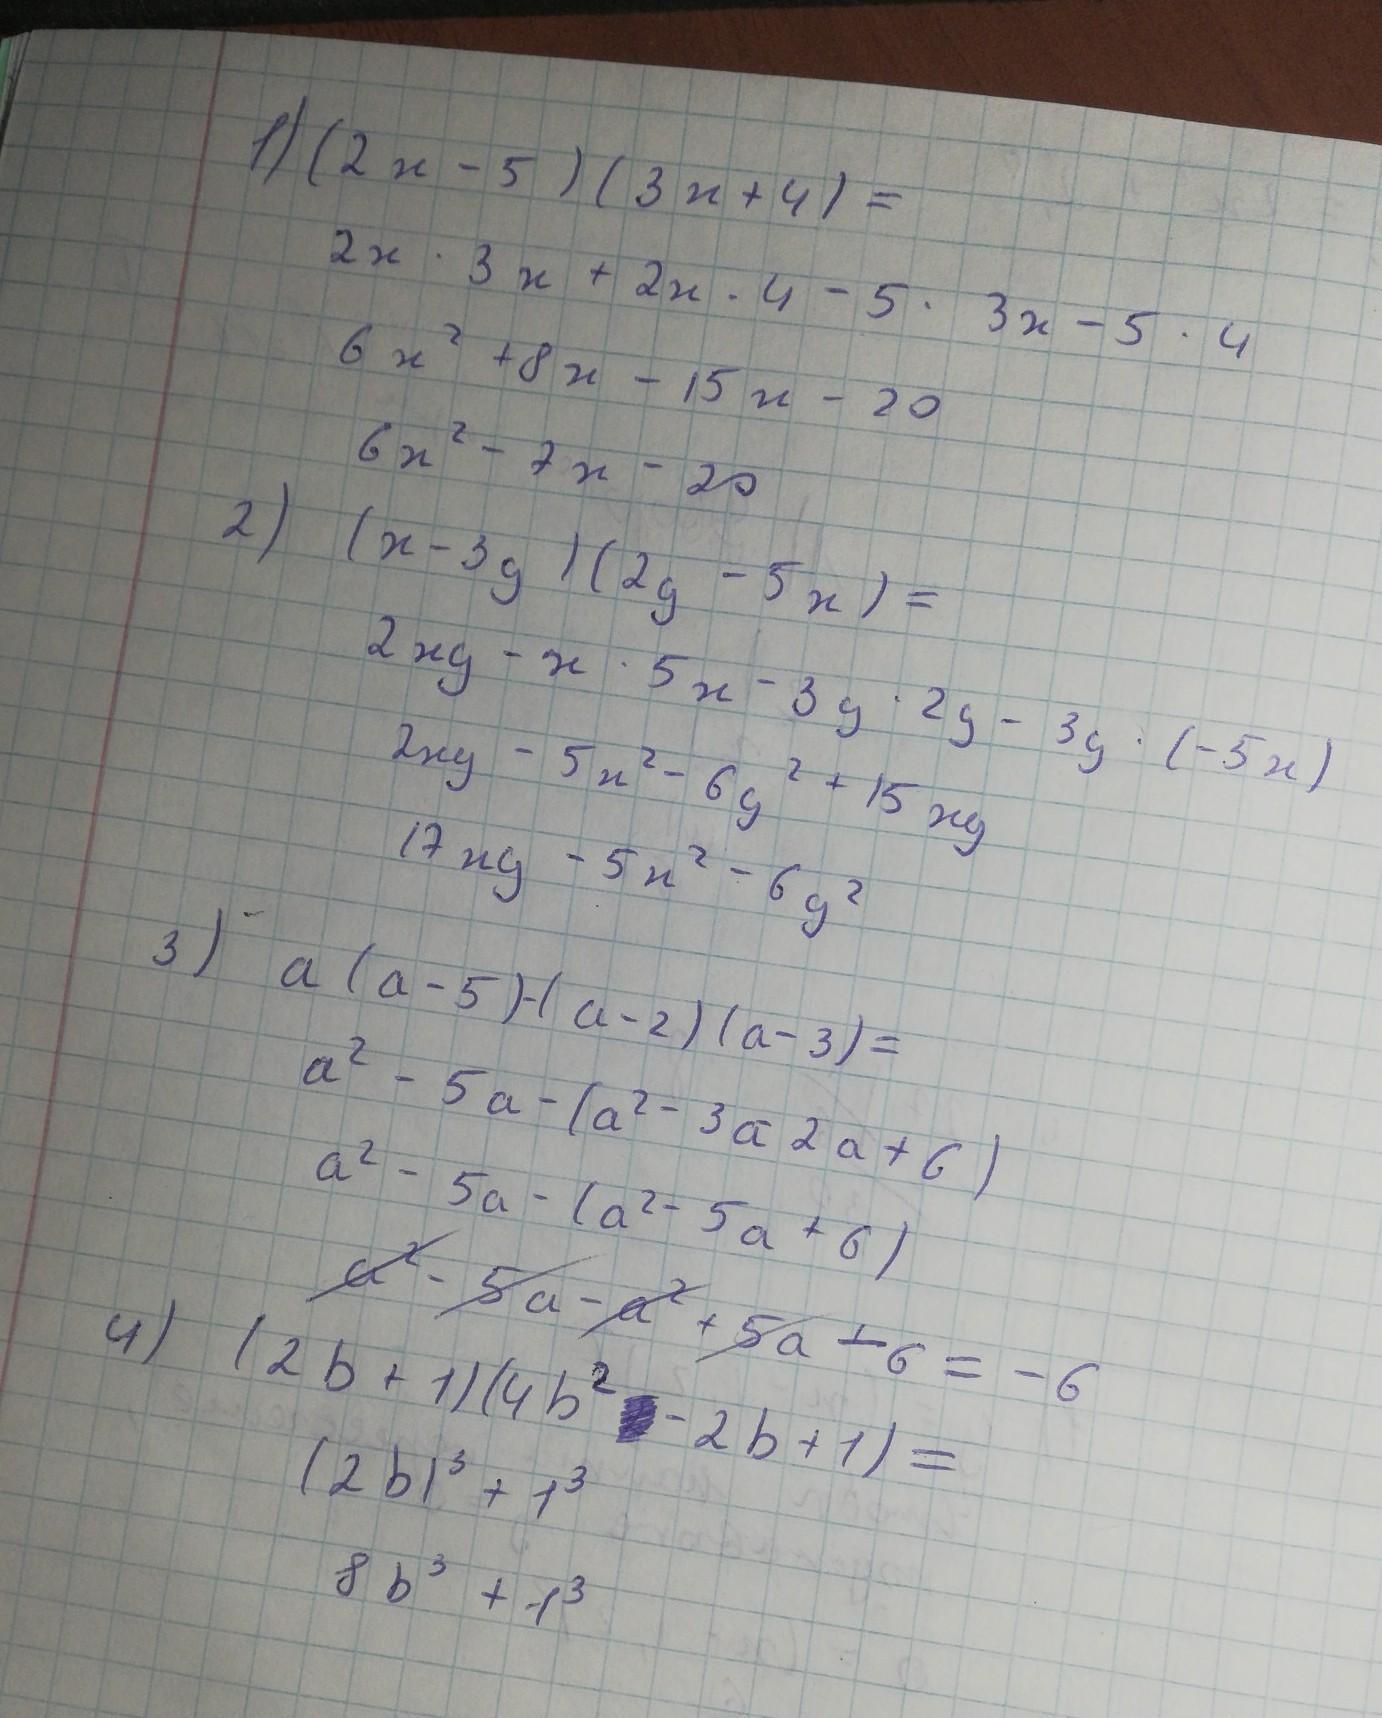 1) (2x - 5)(3x + 4) =
2x · 3x + 2x · 4 - 5 · 3x - 5 · 4
6x² + 8x - 15x - 20
6x² - 7x - 20
2) (x - 3y)(2y - 5x) =
2xy - x · 5x - 3y · 2y - 3y · (-5x)
2xy - 5x² - 6y² + 15xy
17xy - 5x² - 6y²
3) a(a - 5) - (a - 2)(a - 3) =
a² - 5a - (a² - 3a - 2a + 6)
a² - 5a - (a² - 5a + 6)
a² - 5a - a² + 5a - 6 = -6
4) (2b + 1)(4b² - 2b + 1) =
(2b)³ + 1³
8b³ + 1³